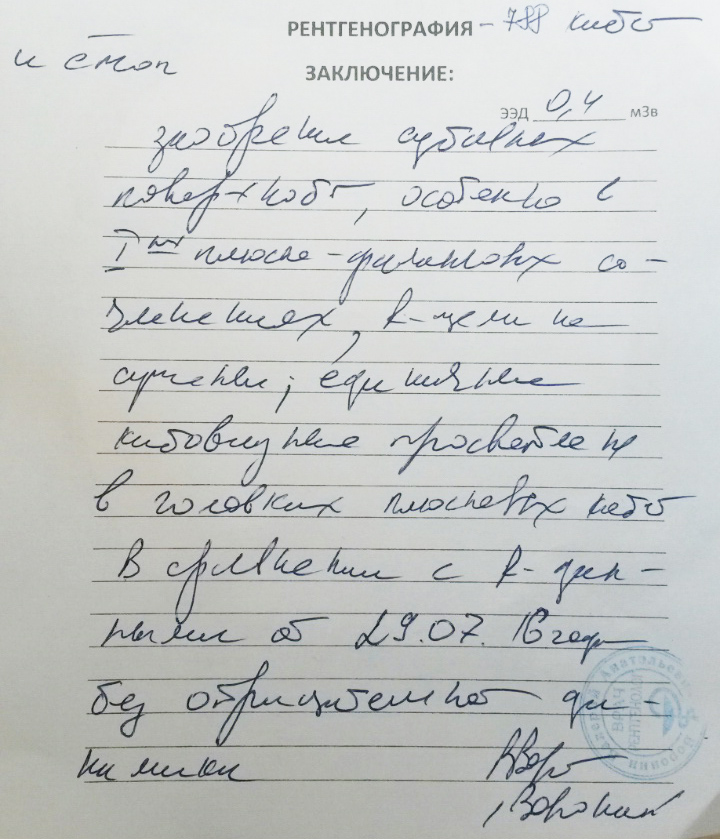 РЕНТГЕНОГРАФИЯ - 788 кистей
и стоп
ЗАКЛЮЧЕНИЕ:
ЭЭД 0,4 мЗв
заострены суставных
поверхност, особенно в
Iых плюсне-фаланговых со-
членениях, R-щели не
сужены; единичные
кистовидные просветлен
в головках плюсневых костей
В сравнении с R-дан-
ными от 29.07.16 года
без отрицательной ди-
намики
Воронин